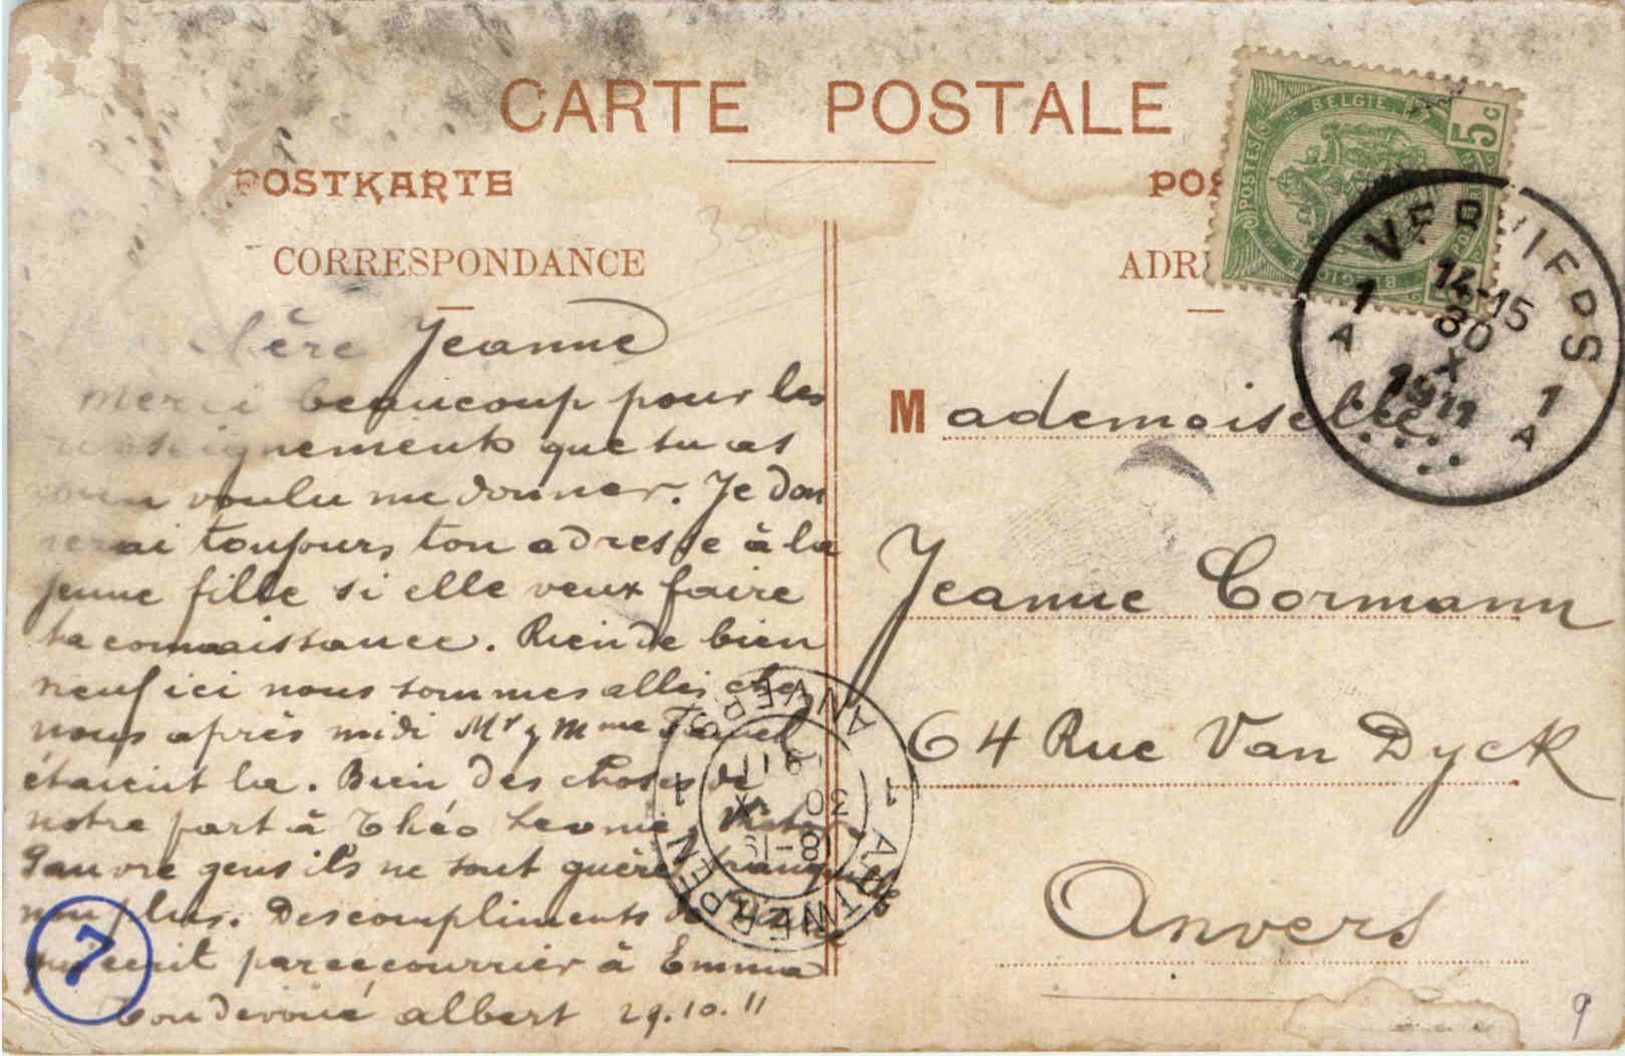 CARTE POSTALE
POSTKARTE
POS
CORRESPONDANCE
ADR
BELGIE
POSTES
5c
VERVIERS
1 1
A A
14-15
30
X
1911
Chère Jeanne
merci beaucoup pour les
renseignements que tu as
bien voulu me donner. Je don
nerai toujours ton adresse à la
jeune fille si elle veux faire
ta connaissance. Rien de bien
neuf ici nous sommes allés chez
nous après midi Mr & Mme
étaient la. Bien des choses de
notre part à Théo Leonie,
Pauvre gens ils ne sont guère tranquille
non plus. Des compliments de
qui écrit par ce courrier à Emma
Ton dévoué albert 29.10.11
Mademoiselle
Jeanne Cormann
64 Rue Van Dyck
Anvers
ANVERS
1 ANTWERPEN 1
30
X
7
9